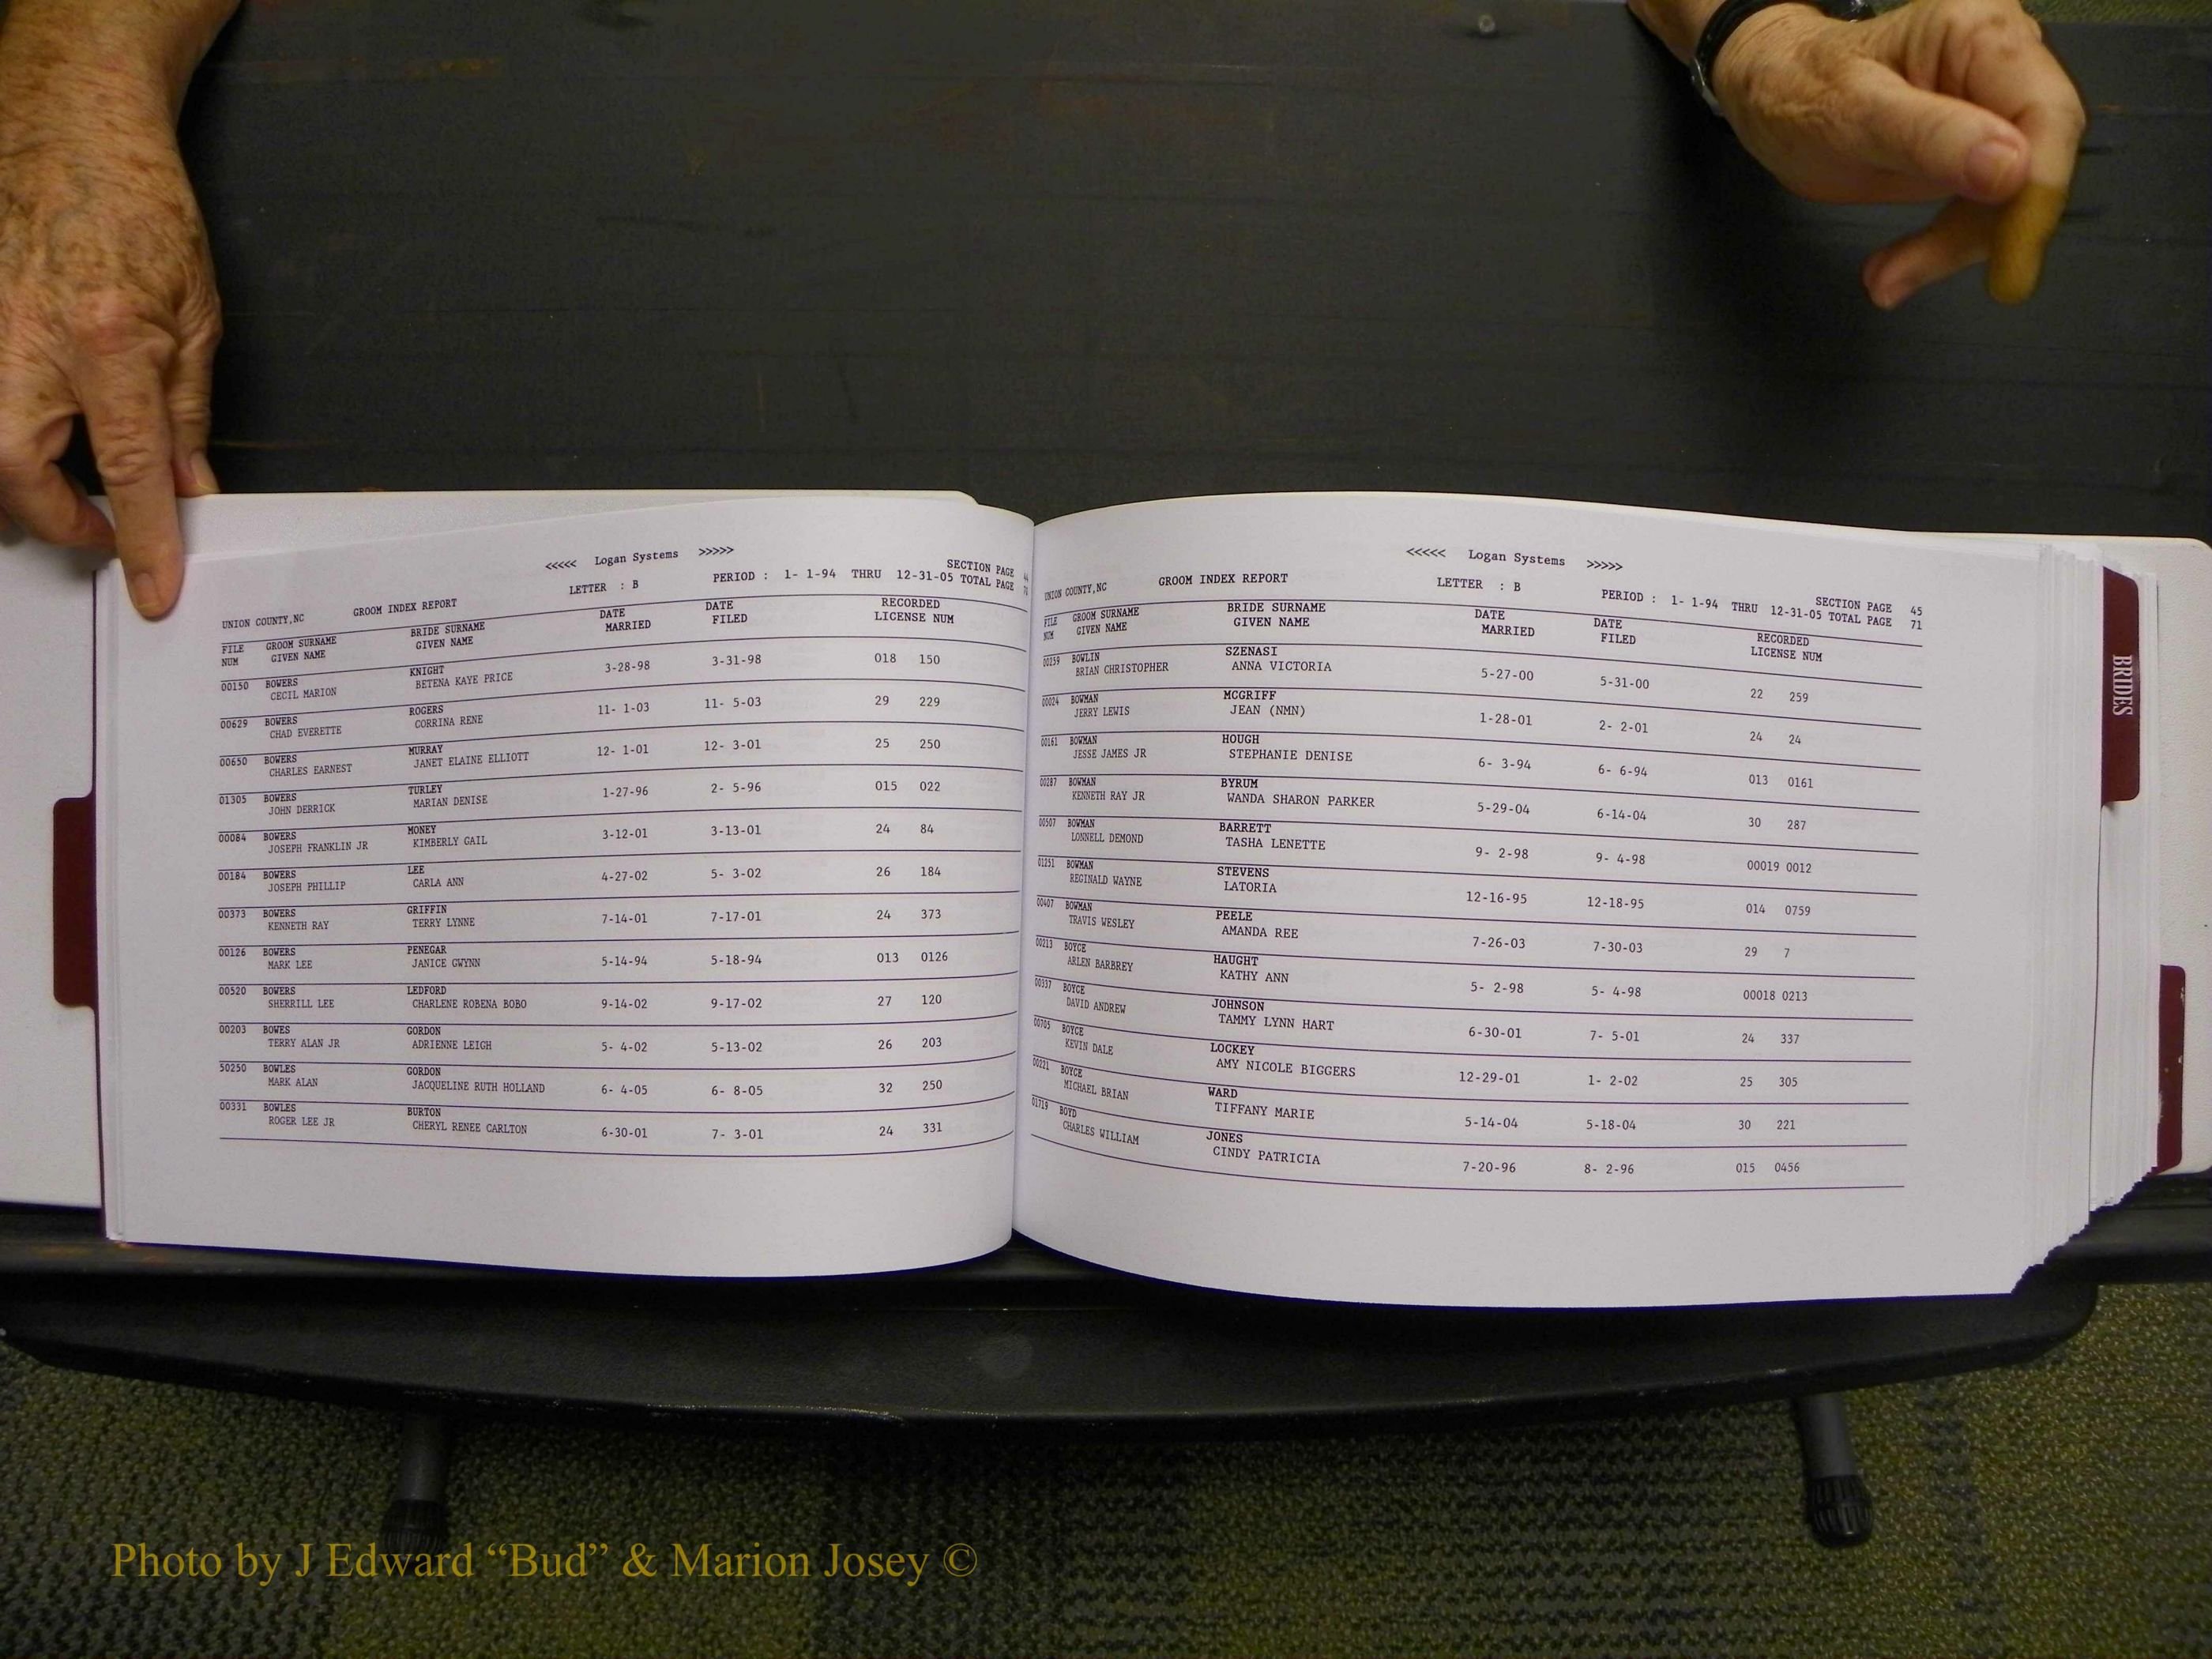 <<<<< Logan Systems >>>>>
SECTION PAGE 44
LETTER : B PERIOD : 1- 1-94 THRU 12-31-05 TOTAL PAGE 70
UNION COUNTY,NC GROOM INDEX REPORT
FILE GROOM SURNAME BRIDE SURNAME DATE DATE RECORDED
NUM GIVEN NAME GIVEN NAME MARRIED FILED LICENSE NUM
00150 BOWERS KNIGHT 3-28-98 3-31-98 018 150
CECIL MARION BETENA KAYE PRICE
00629 BOWERS ROGERS 11- 1-03 11- 5-03 29 229
CHAD EVERETTE CORRINA RENE
00650 BOWERS MURRAY 12- 1-01 12- 3-01 25 250
CHARLES EARNEST JANET ELAINE ELLIOTT
01305 BOWERS TURLEY 1-27-96 2- 5-96 015 022
JOHN DERRICK MARIAN DENISE
00084 BOWERS MONEY 3-12-01 3-13-01 24 84
JOSEPH FRANKLIN JR KIMBERLY GAIL
00184 BOWERS LEE 4-27-02 5- 3-02 26 184
JOSEPH PHILLIP CARLA ANN
00373 BOWERS GRIFFIN 7-14-01 7-17-01 24 373
KENNETH RAY TERRY LYNNE
00126 BOWERS PENEGAR 5-14-94 5-18-94 013 0126
MARK LEE JANICE GWYNN
00520 BOWERS LEDFORD 9-14-02 9-17-02 27 120
SHERRILL LEE CHARLENE ROBENA BOBO
00203 BOWES GORDON 5- 4-02 5-13-02 26 203
TERRY ALAN JR ADRIENNE LEIGH
50250 BOWLES GORDON 6- 4-05 6- 8-05 32 250
MARK ALAN JACQUELINE RUTH HOLLAND
00331 BOWLES BURTON 6-30-01 7- 3-01 24 331
ROGER LEE JR CHERYL RENEE CARLTON
<<<<< Logan Systems >>>>>
UNION COUNTY,NC GROOM INDEX REPORT LETTER : B PERIOD : 1- 1-94 THRU 12-31-05 TOTAL PAGE 71
SECTION PAGE 45
FILE GROOM SURNAME BRIDE SURNAME DATE DATE RECORDED
NUM GIVEN NAME GIVEN NAME MARRIED FILED LICENSE NUM
00259 BOWLIN SZENASI 5-27-00 5-31-00 22 259
BRIAN CHRISTOPHER ANNA VICTORIA
00024 BOWMAN MCGRIFF 1-28-01 2- 2-01 24 24
JERRY LEWIS JEAN (NMN)
00161 BOWMAN HOUGH 6- 3-94 6- 6-94 013 0161
JESSE JAMES JR STEPHANIE DENISE
00287 BOWMAN BYRUM 5-29-04 6-14-04 30 287
KENNETH RAY JR WANDA SHARON PARKER
00507 BOWMAN BARRETT 9- 2-98 9- 4-98 00019 0012
LONNELL DEMOND TASHA LENETTE
01251 BOWMAN STEVENS 12-16-95 12-18-95 014 0759
REGINALD WAYNE LATORIA
00407 BOWMAN PEELE 7-26-03 7-30-03 29 7
TRAVIS WESLEY AMANDA REE
00213 BOYCE HAUGHT 5- 2-98 5- 4-98 00018 0213
ARLEN BARBREY KATHY ANN
00337 BOYCE JOHNSON 6-30-01 7- 5-01 24 337
DAVID ANDREW TAMMY LYNN HART
00705 BOYCE LOCKEY 12-29-01 1- 2-02 25 305
KEVIN DALE AMY NICOLE BIGGERS
00221 BOYCE WARD 5-14-04 5-18-04 30 221
MICHAEL BRIAN TIFFANY MARIE
01719 BOYD JONES 7-20-96 8- 2-96 015 0456
CHARLES WILLIAM CINDY PATRICIA
BRIDES
Photo by J Edward “Bud” & Marion Josey ©